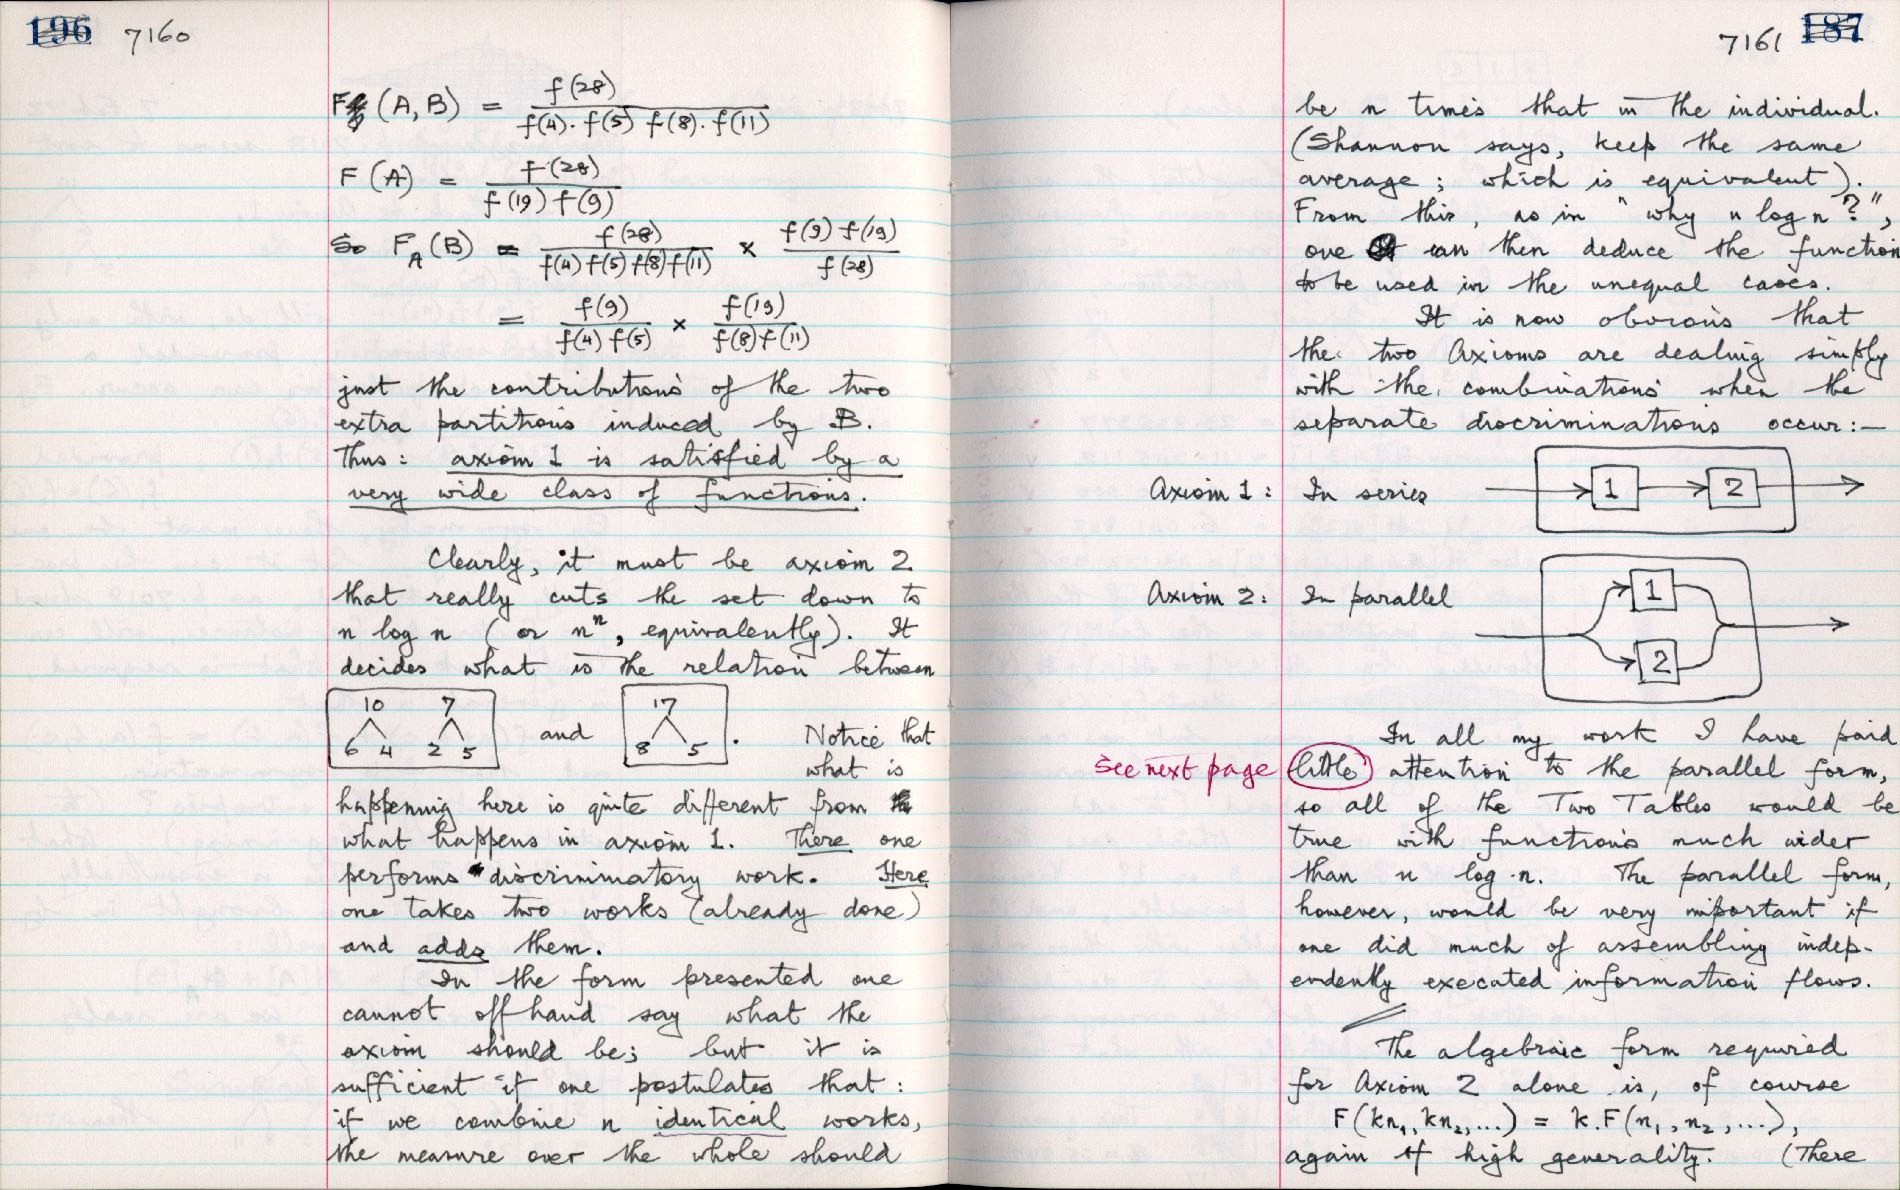 196 7160
F (A, B) = f(28) / f(4). f(5) f(8). f(11)
F(A) = f(28) / f(19) f(9)
So F_A(B) = f(28) / f(4) f(5) f(8) f(11) × f(9) f(19) / f(28)
= f(9) / f(4) f(5) × f(19) / f(8) f(11)
just the contributions of the two
extra partitions induced by B.
Thus: axiom 1 is satisfied by a
very wide class of functions.
Clearly, it must be axiom 2
that really cuts the set down to
n log n (or nⁿ, equivalently). It
decides what is the relation between
10 7 17
6 4 2 5 and 8 5 . Notice that
what is
happening here is quite different from
what happens in axiom 1. There one
performs discriminatory work. Here
one takes two works (already done)
and adds them.
In the form presented one
cannot offhand say what the
axiom should be; but it is
sufficient if one postulates that:
if we combine n identical works,
the measure over the whole should
7161 187
be n times that in the individual.
(Shannon says, keep the same
average; which is equivalent).
From this, as in "why n log n?",
one can then deduce the function
to be used in the unequal cases.
It is now obvious that
the two Axioms are dealing simply
with the combinations when the
separate discriminations occur:—
Axiom 1: In series 1 2
Axiom 2: In parallel 1
2
In all my work I have paid
See next page little attention to the parallel form,
so all of the Two Tables would be
true with functions much wider
than n log n. The parallel form,
however, would be very important if
one did much of assembling indep-
endently executed information flows.
The algebraic form required
for Axiom 2 alone is, of course
F(kn₁, kn₂, ...) = k.F(n₁, n₂, ...),
again of high generality. (There